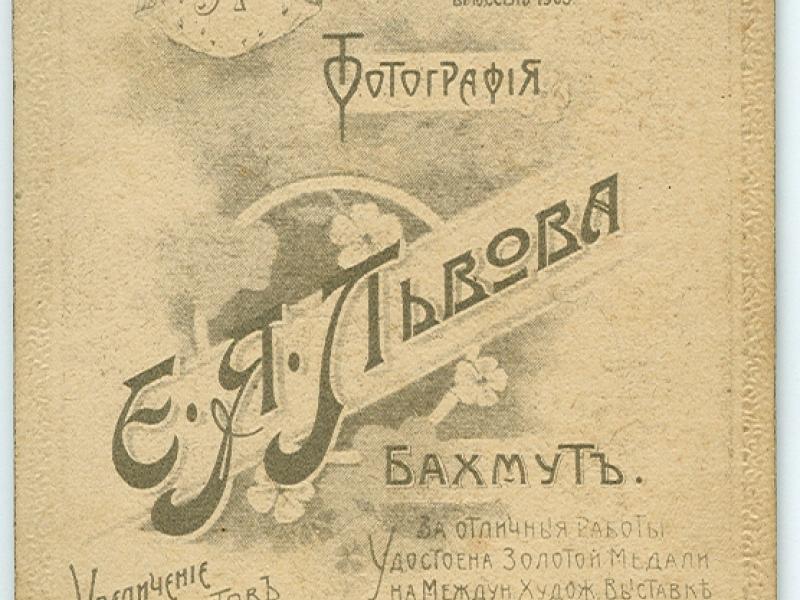 Фотографія
Е. Я. Львова
Бахмутъ.
За отличныя работы
Удостоена Золотой Медали
на Междун. Худож. Выставкѣ
Увеличеніе